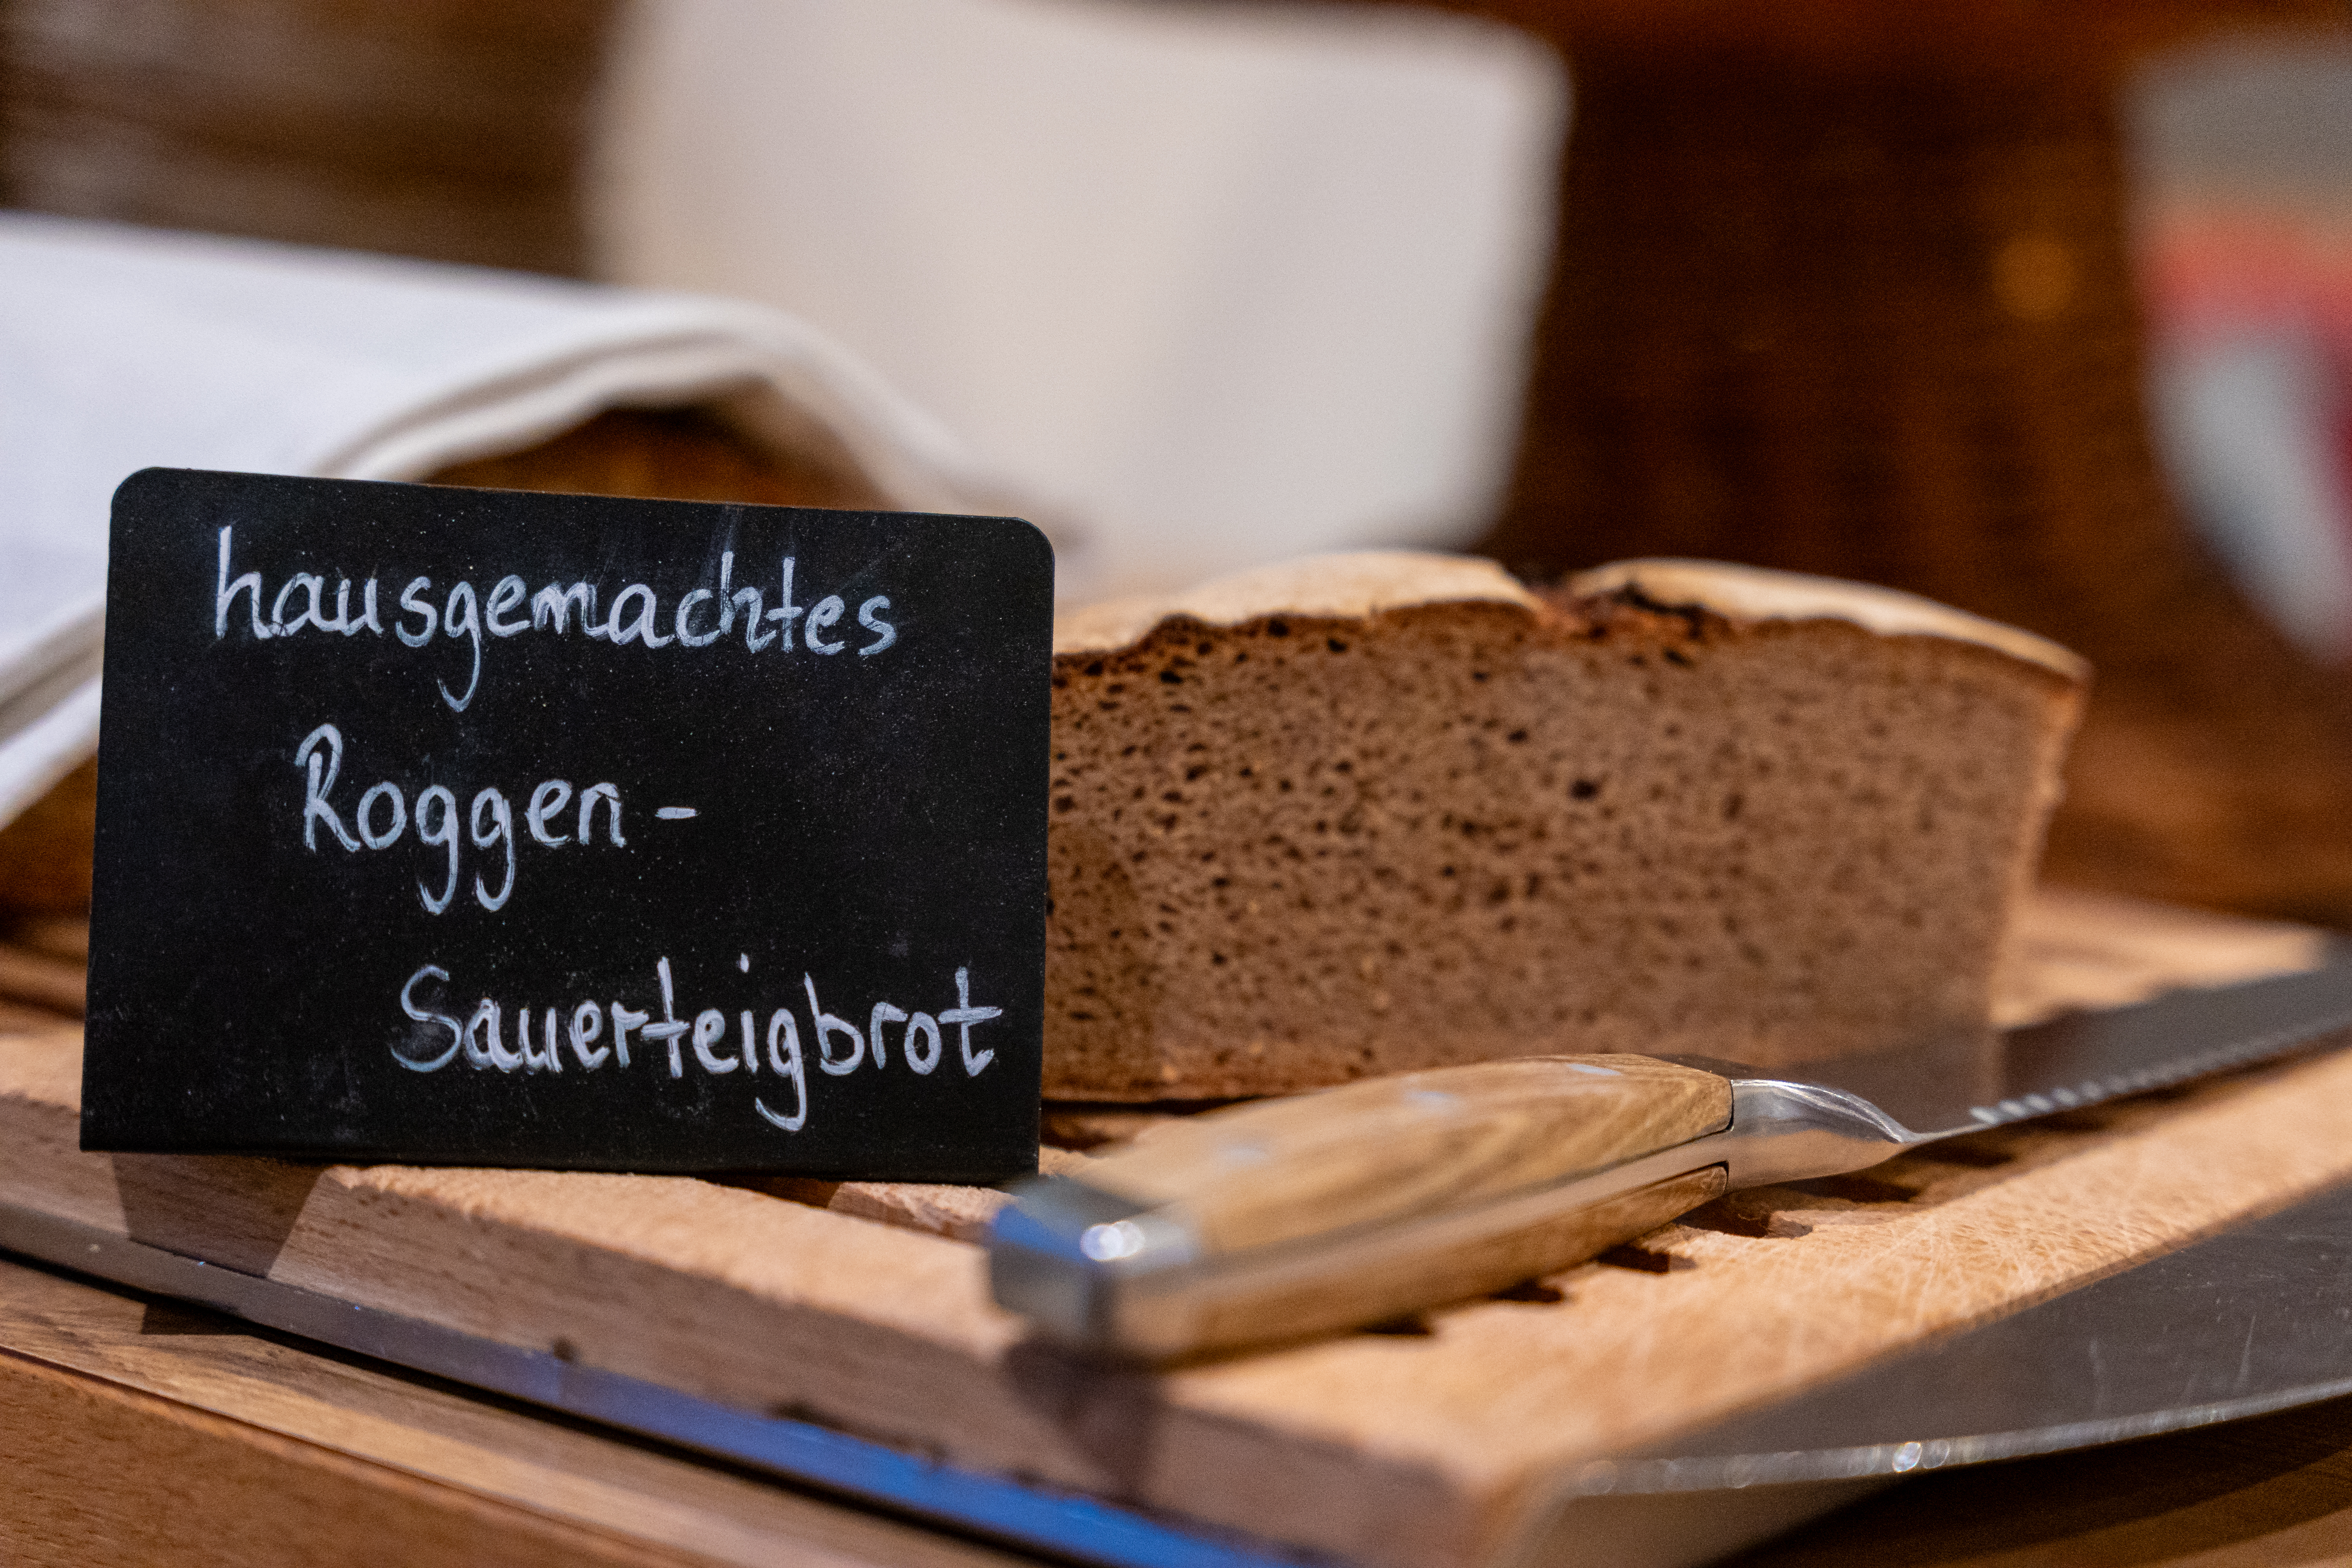 hausgemachtes
Roggen-
Sauerteigbrot